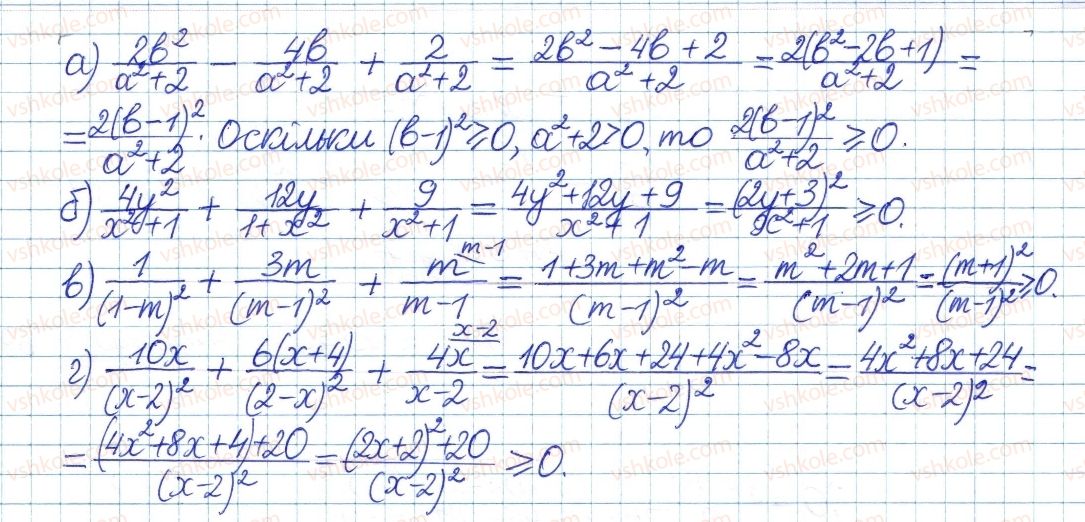 а) 2b²/(a²+2) − 4b/(a²+2) + 2/(a²+2) = (2b² − 4b + 2)/(a²+2) = 2(b²−2b+1)/(a²+2) =
= 2(b−1)²/(a²+2). Оскільки (b−1)² ⩾ 0, a²+2>0, то 2(b−1)²/(a²+2) ⩾ 0.
б) 4y²/(x²+1) + 12y/(1+x²) + 9/(x²+1) = (4y²+12y+9)/(x²+1) = (2y+3)²/(x²+1) ⩾ 0.
в) 1/(1−m)² + 3m/(m−1)² + m/(m−1) ^(m−1) = (1+3m+m²−m)/(m−1)² = (m²+2m+1)/(m−1)² = (m+1)²/(m−1)² ⩾ 0.
г) 10x/(x−2)² + 6(x+4)/(2−x)² + 4x/(x−2) ^(x−2) = (10x+6x+24+4x²−8x)/(x−2)² = (4x²+8x+24)/(x−2)² =
= ((4x²+8x+4)+20)/(x−2)² = ((2x+2)²+20)/(x−2)² ⩾ 0.
vshkole.com